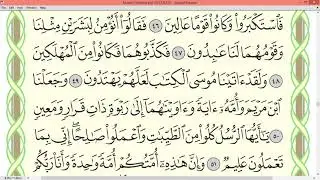 فَٱسْتَكْبَرُوا۟ وَكَانُوا۟ قَوْمًا عَالِينَ ٤٦ فَقَالُوٓا۟ أَنُؤْمِنُ لِبَشَرَيْنِ مِثْلِنَا
وَقَوْمُهُمَا لَنَا عَـٰبِدُونَ ٤٧ فَكَذَّبُوهُمَا فَكَانُوا۟ مِنَ ٱلْمُهْلَكِينَ
٤٨ وَلَقَدْ ءَاتَيْنَا مُوسَى ٱلْكِتَـٰبَ لَعَلَّهُمْ يَهْتَدُونَ ٤٩ وَجَعَلْنَا
ٱبْنَ مَرْيَمَ وَأُمَّهُۥٓ ءَايَةً وَءَاوَيْنَـٰهُمَآ إِلَىٰ رَبْوَةٍ ذَاتِ قَرَارٍ وَمَعِينٍ
٥٠ يَـٰٓأَيُّهَا ٱلرُّسُلُ كُلُوا۟ مِنَ ٱلطَّيِّبَـٰتِ وَٱعْمَلُوا۟ صَـٰلِحًا إِنِّى بِمَا
تَعْمَلُونَ عَلِيمٌ ٥١ وَإِنَّ هَـٰذِهِۦٓ أُمَّتُكُمْ أُمَّةً وَٰحِدَةً وَأَنَا۠ رَبُّكُمْ